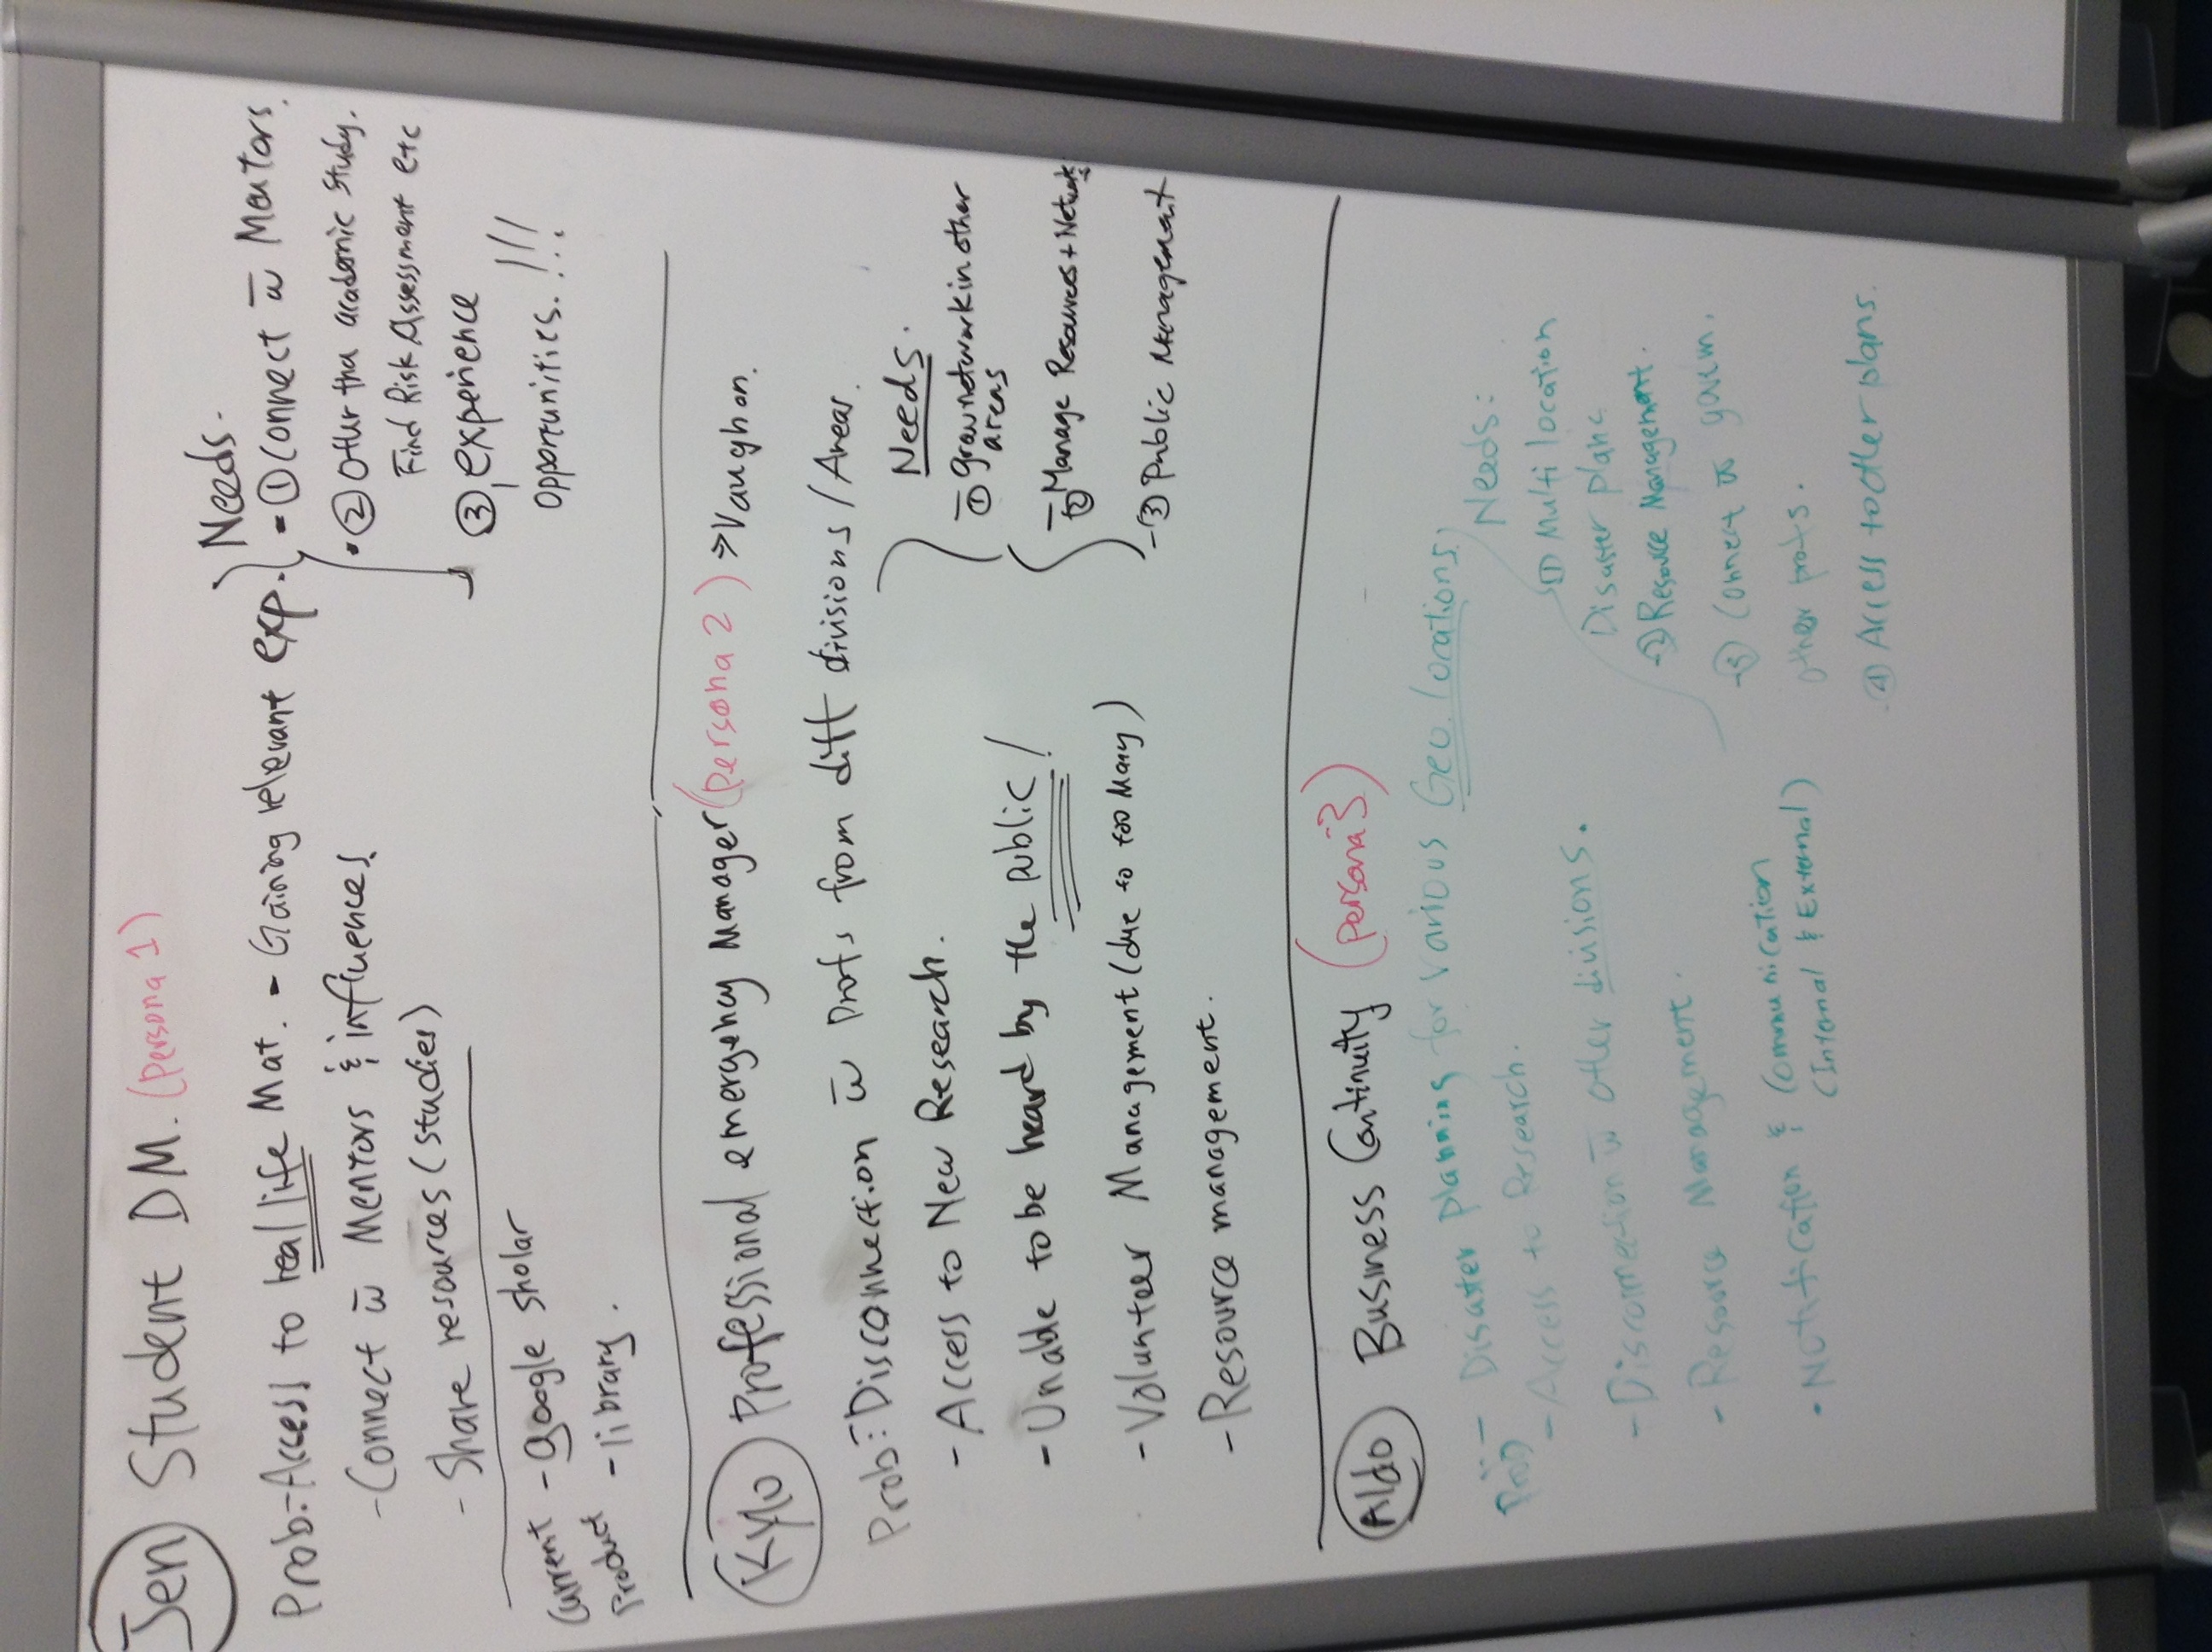 Jen Student DM. (Persona 1)
Prob:-Access to real life Mat. - Gaining relevant exp.
-Connect w̄ Mentors & influences.
- Share resources (studies)
Needs.
- ① Connect w̄ Mentors.
• ② Other tha academic study.
Find Risk Assessment etc
③ experience
opportunities. !!!
Current - google sholar
Product - library.
Kylo Professional emergency Manager (Persona 2) → Vaughon.
Prob:-Disconnection w̄ Profs from diff divisions / Areas.
- Access to New Research.
- Unable to be heard by the public!
- Volunteer Management (due to too Many)
- Resource management.
Needs.
- ① grow network in other
areas
- ② Manage Resources + Network
- ③ Public Management
Aldo Business Continuity (Persona 3)
Prob: - Disaster planning for various Geo. locations.
- Access to Research.
- Disconnection w̄ other divisions.
- Resource Management.
• Notification & Communication
(Internal & External)
Needs:
① Multi location
Disaster plans
-② Resource Management.
-③ Connect w̄ govern.
other profs.
④ Access to other plans.